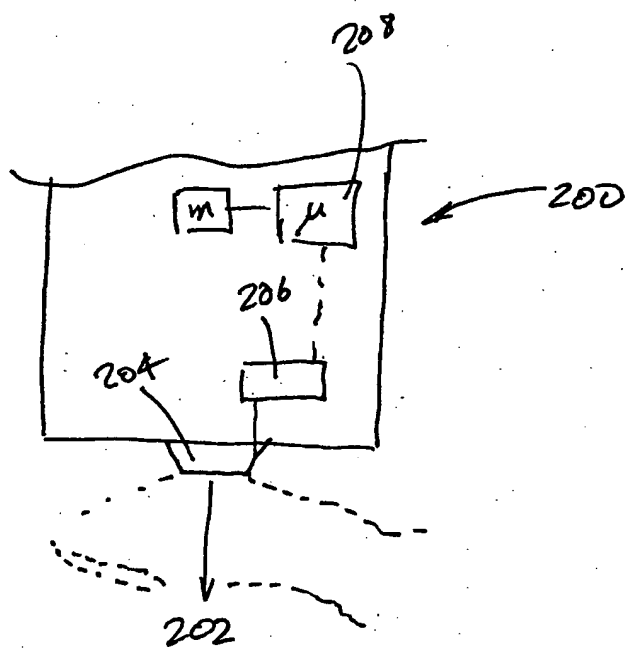 208
200
m
μ
206
204
202